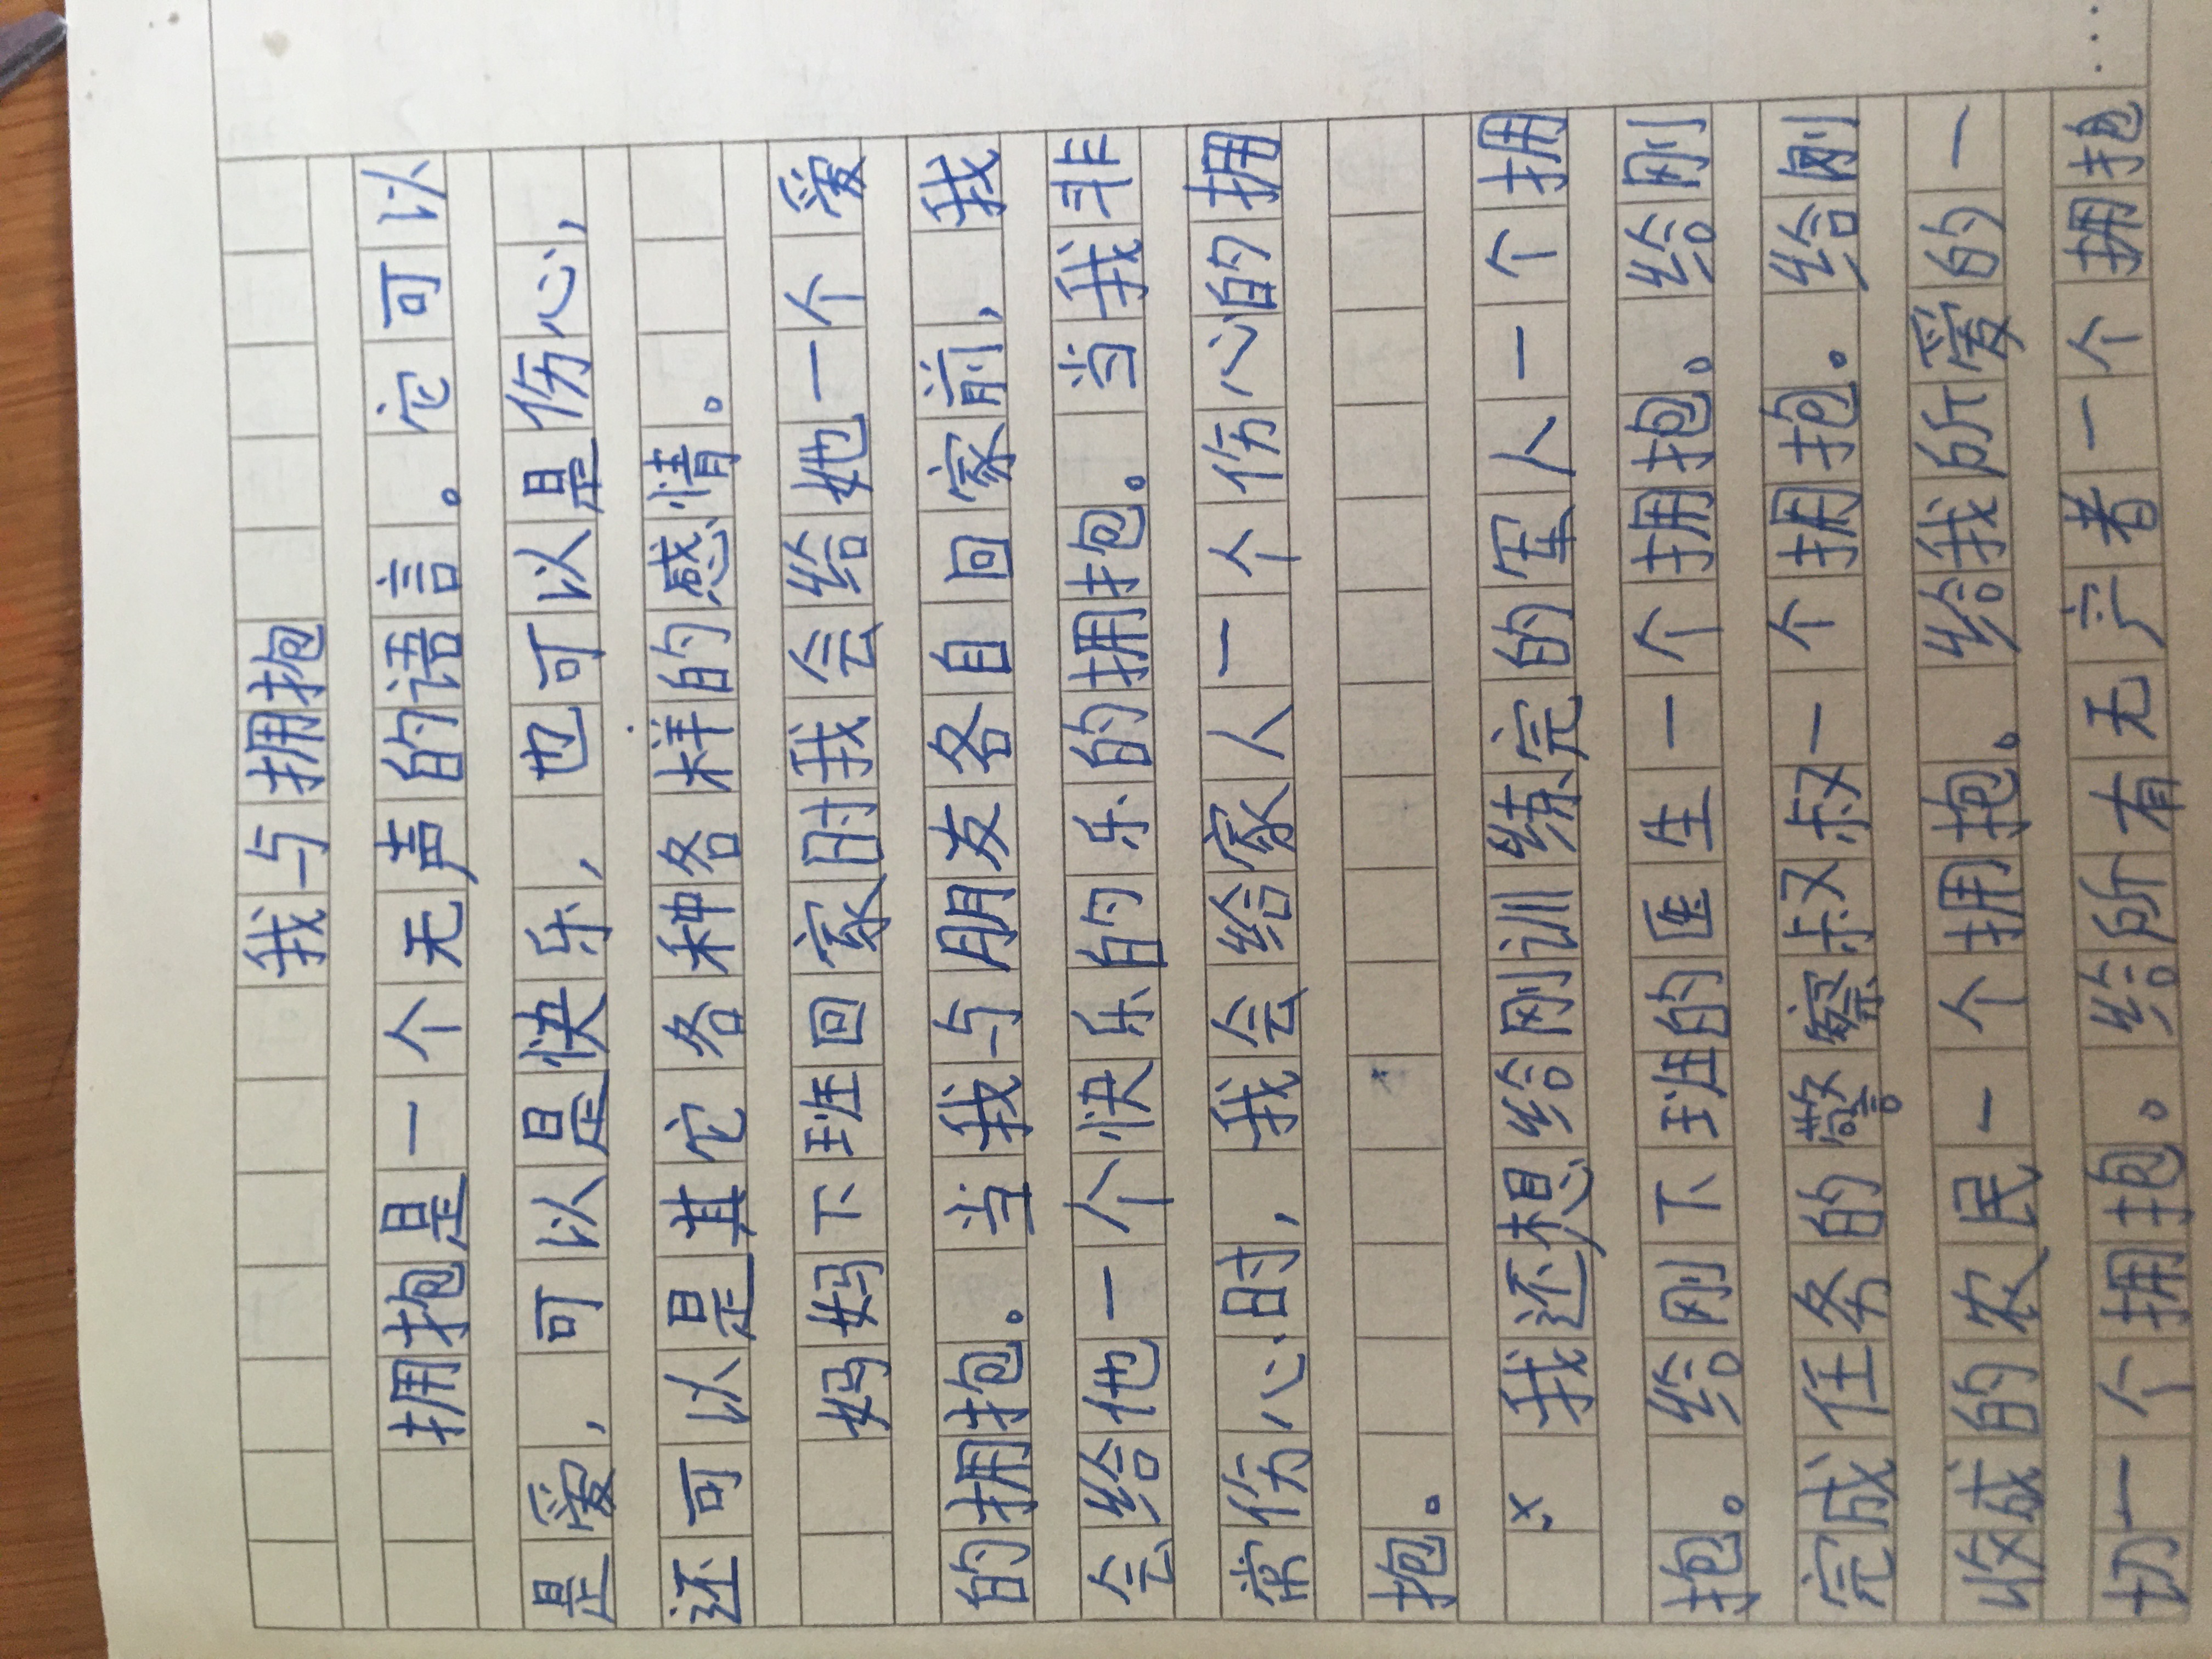 我与拥抱
拥抱是一个无声的语言。它可以
是爱，可以是快乐，也可以是伤心，
还可以是其它各种各样的感情。
妈妈下班回家时我会给她一个爱
的拥抱。当我与朋友各自回家前，我
会给他一个快乐的乐的拥抱。当我非
常伤心时，我会给家人一个伤心的拥
抱。
我还想给刚训练完的军人一个拥
抱。给刚下班的医生一个拥抱。给刚
完成任务的警察叔叔一个拥抱。给刚
收成的农民一个拥抱。给我所爱的一
切一个拥抱。给所有无产者一个拥抱